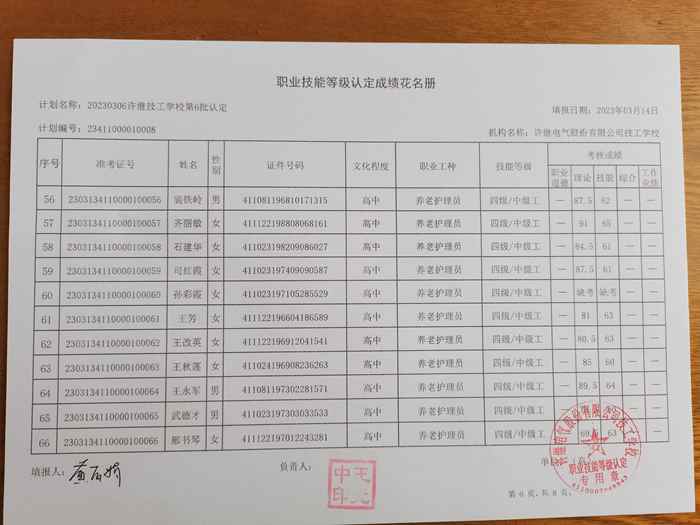 职业技能等级认定成绩花名册
计划名称：20230306许继技工学校第6批认定 填报日期：2023年03月14日
计划编号：23411000010008 机构名称：许继电气股份有限公司技工学校
序号 准考证号 姓名 性别 证件号码 文化程度 职业工种 技能等级 考核成绩
职业道德 理论 技能 综合 工作业绩
56 2303134110000100056 铁岭 男 411081196810171315 高中 养老护理员 四级/中级工 — 87.5 62 — —
57 2303134110000100057 齐丽敏 女 411122198808068161 高中 养老护理员 四级/中级工 — 91 65 — —
58 2303134110000100058 石建华 女 411023198209086027 高中 养老护理员 四级/中级工 — 84.5 61 — —
59 2303134110000100059 司红霞 女 411023197409090587 高中 养老护理员 四级/中级工 — 87.5 61 — —
60 2303134110000100060 孙彩霞 女 411023197105285529 高中 养老护理员 四级/中级工 — 缺考 缺考 — —
61 2303134110000100061 王芳 女 411122196604186589 高中 养老护理员 四级/中级工 — 81 63 — —
62 2303134110000100062 王改英 女 411122196912041541 高中 养老护理员 四级/中级工 — 80.5 63 — —
63 2303134110000100063 王秋莲 女 411024196908236263 高中 养老护理员 四级/中级工 — 85 60 — —
64 2303134110000100064 王永军 男 411081197302281571 高中 养老护理员 四级/中级工 — 89.5 64 — —
65 2303134110000100065 武德才 男 411023197303033533 高中 养老护理员 四级/中级工 —
66 2303134110000100066 邢书琴 女 411122197012243281 高中 养老护理员 四级/中级工 — 63
填报人： 负责人： 单
第 6 页, 共 8 页
许继电气股份有限公司技工学校
职业技能等级认定
专用章